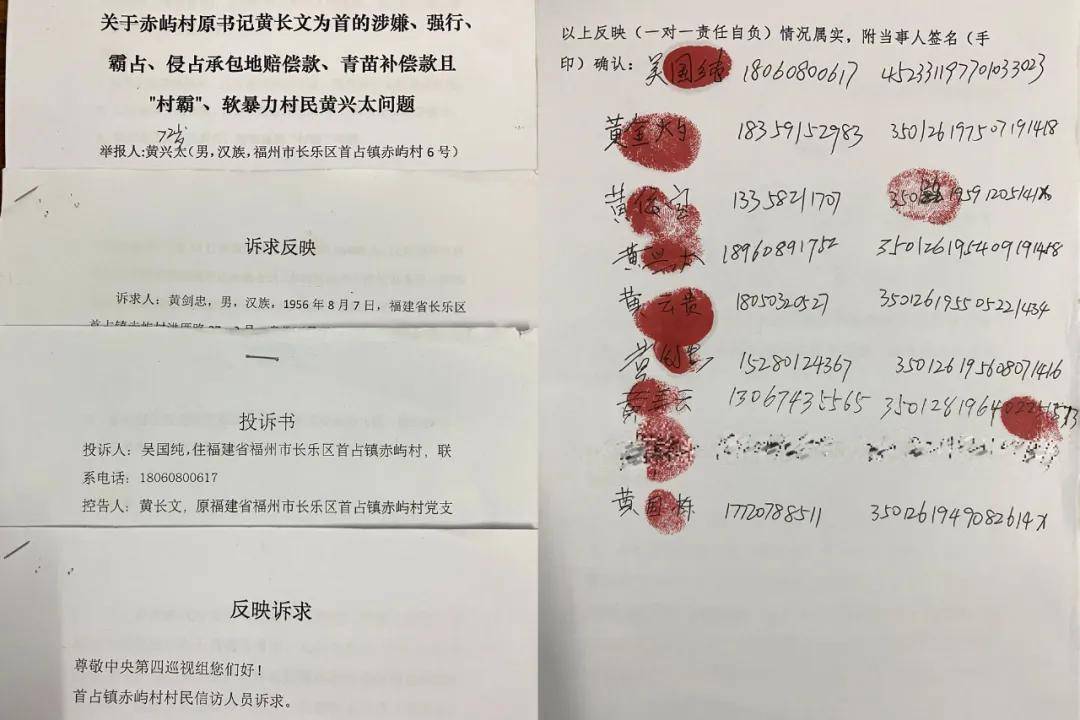 关于赤屿村原书记黄长文为首的涉嫌、强行、
霸占、侵占承包地赔偿款、青苗补偿款且
"村霸"、软暴力村民黄兴太问题
72岁
举报人:黄兴太(男,汉族,福州市长乐区首占镇赤屿村6号)
诉求反映
诉求人：黄剑忠，男，汉族，1956年8月7日，福建省长乐区
投诉书
投诉人：吴国纯,住福建省福州市长乐区首占镇赤屿村，联
系电话：18060800617
控告人：黄长文，原福建省福州市长乐区首占镇赤屿村党支
反映诉求
尊敬中央第四巡视组您们好！
首占镇赤屿村村民信访人员诉求。
以上反映（一对一责任自负）情况属实，附当事人签名（手
印）确认：吴国纯 18060800617 452331197701033023
黄 18359152983 350126197507191418
黄 13358211707
黄兴太 18960891752 350126195409191458
黄云贵 18050320527 350126195505221434
15280124367 350126195608071416
13067435565
黄国栋 17720788511 35012619490826147x